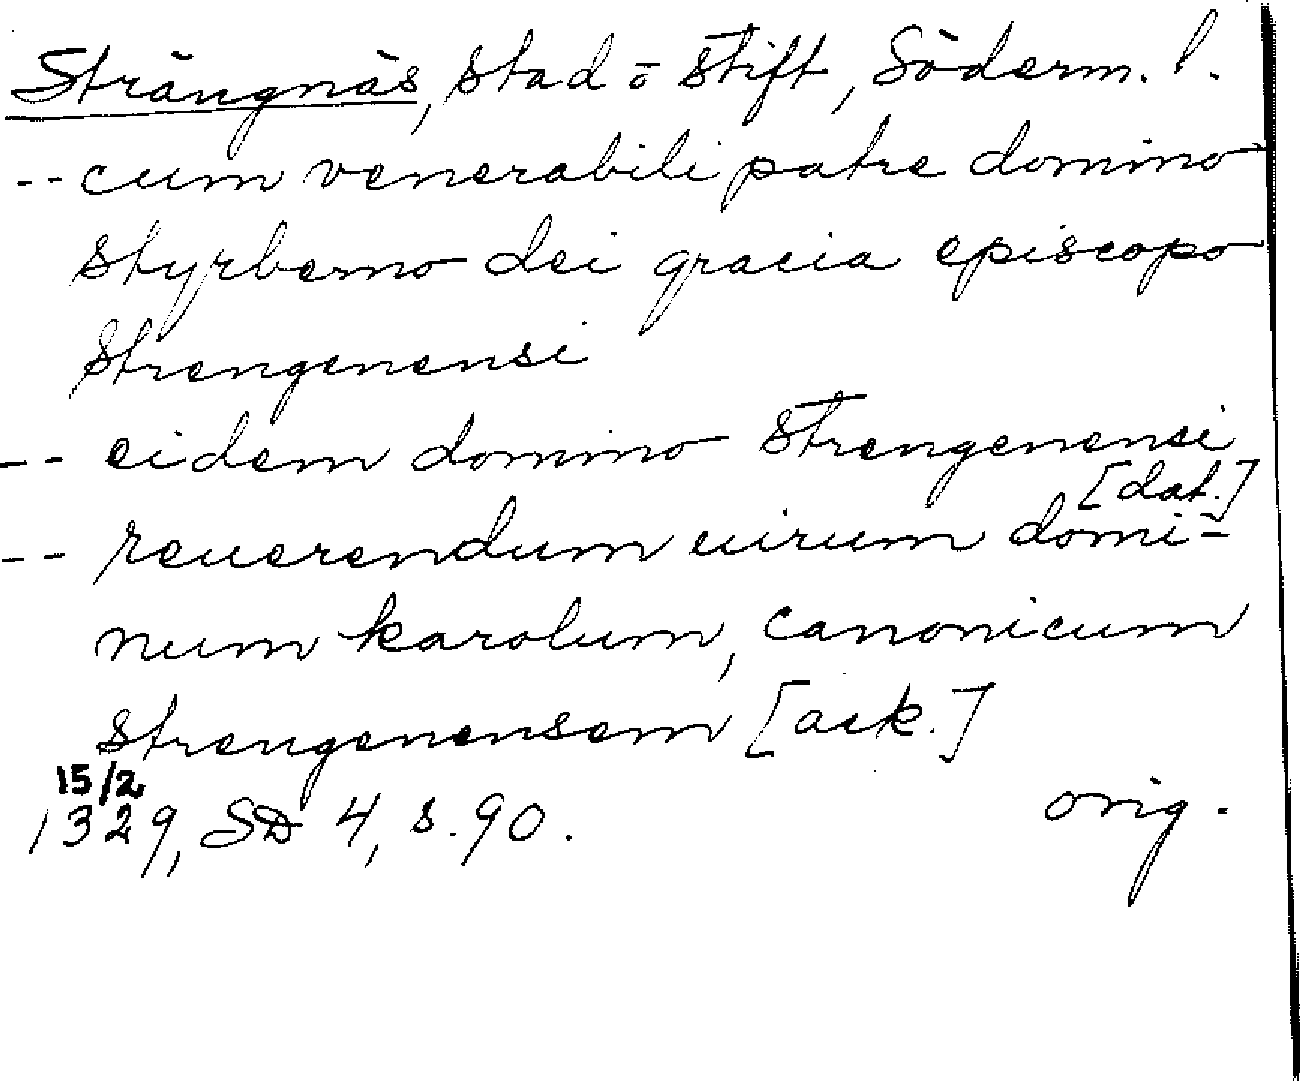 Strängnäs, stad ō stift, Söderm. l.
-- cum venerabili patre domino
styrberno dei gracia episcopo
strengenensi
-- eidem domino strengenensi
[dat.]
-- reuerendum uirum domi-
num karolum, canonicum
strengenensem [ack.]
15/2
1329, SD 4, s. 90. orig.